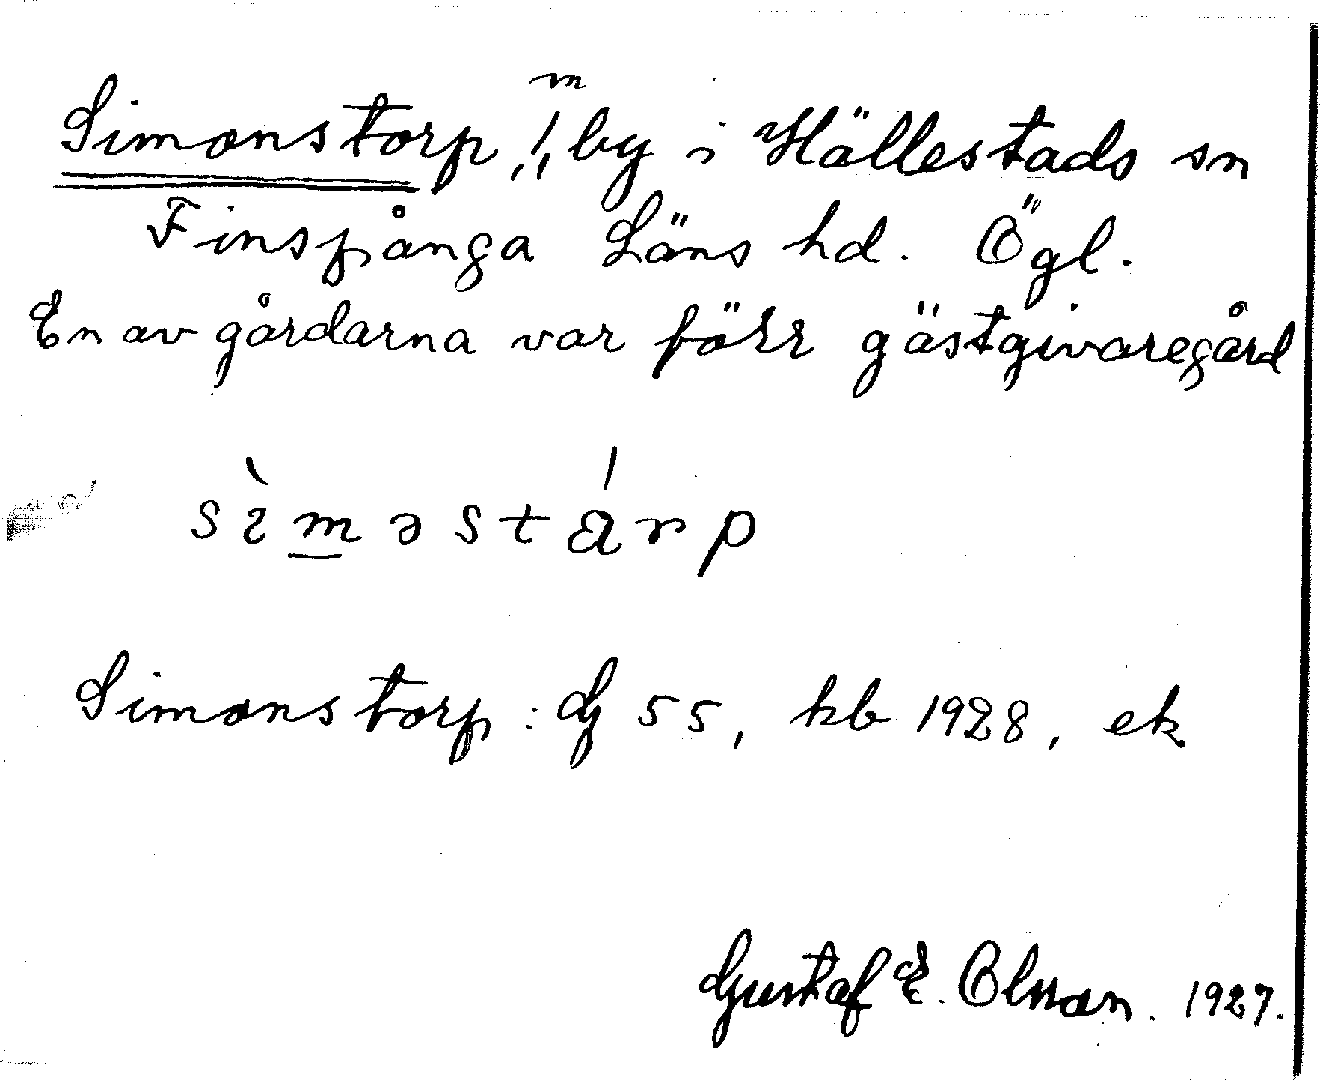 Simonstorp, m, by i Hällestads sn
Finspånga Läns hd. Ögl.
En av gårdarna var förr gästgivaregård
sìməstárp
Simonstorp: G 55, kb 1928, ek
Gustaf E. Olsson. 1927.